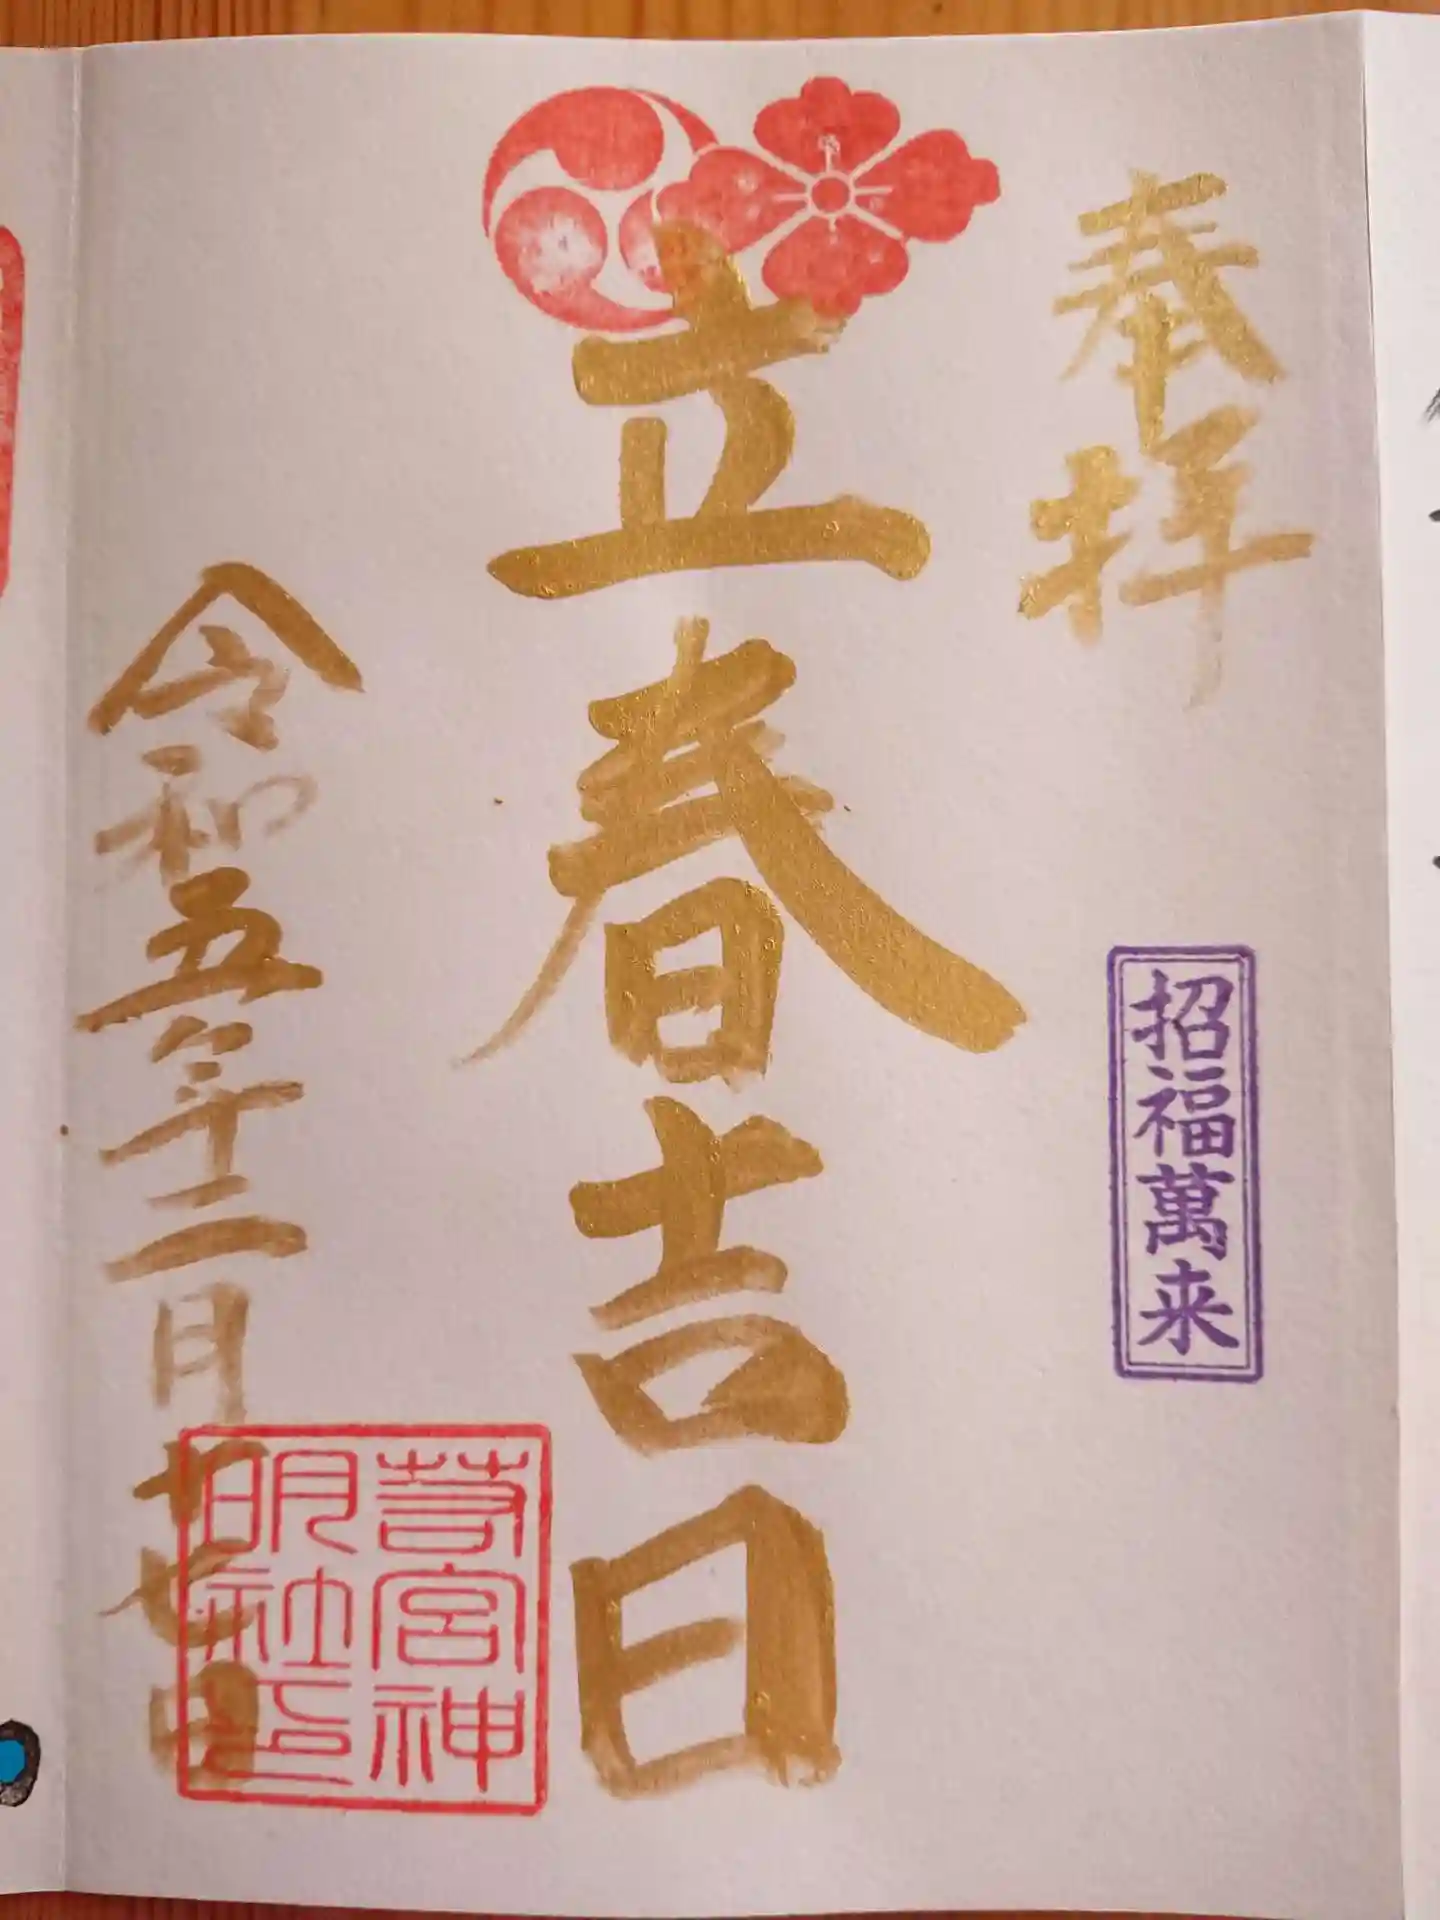 奉拝
招福萬来
立春吉日
令和五年二月廿七日
若宮神
明社印